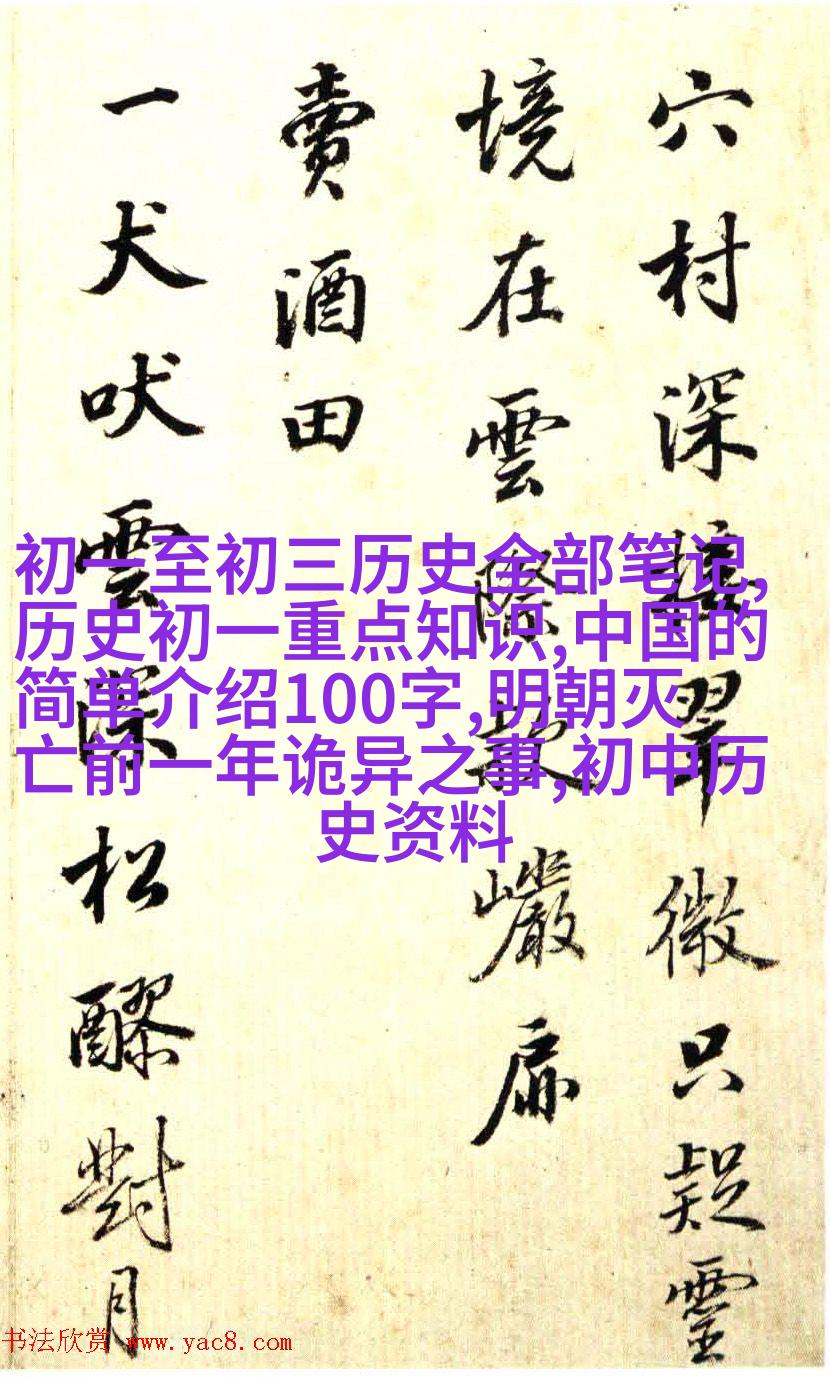 穴村深翠微只疑靈
境在雲際巖扉
賣酒田
一犬吠雲深松醪對月
初一至初三历史全部笔记,
历史初一重点知识,中国的
简单介绍100字,明朝灭
亡前一年诡异之事,初中历
史资料
书法欣赏 www.yac8.com